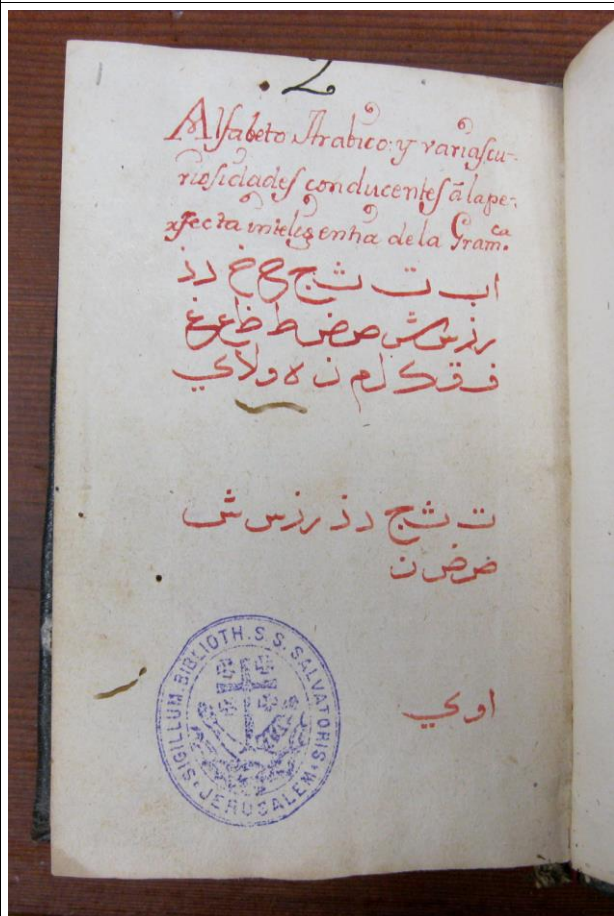 1
.2
Alfabeto Arabico: y varias cu-
riosidades conducentes à la pe-
rfecta inteligentia de la Gram.ca
ا ب ت ث ج ح خ د ذ
ر ز س ش ص ض ط ظ ع غ
ف ق ك ل م ن ه و لا ي
ت ث ج د ذ ر ز س ش
ص ض ن
ا و ي
SIGILLUM BIBLIOTH. S. S. SALVATORIS · JERUSALEM ·